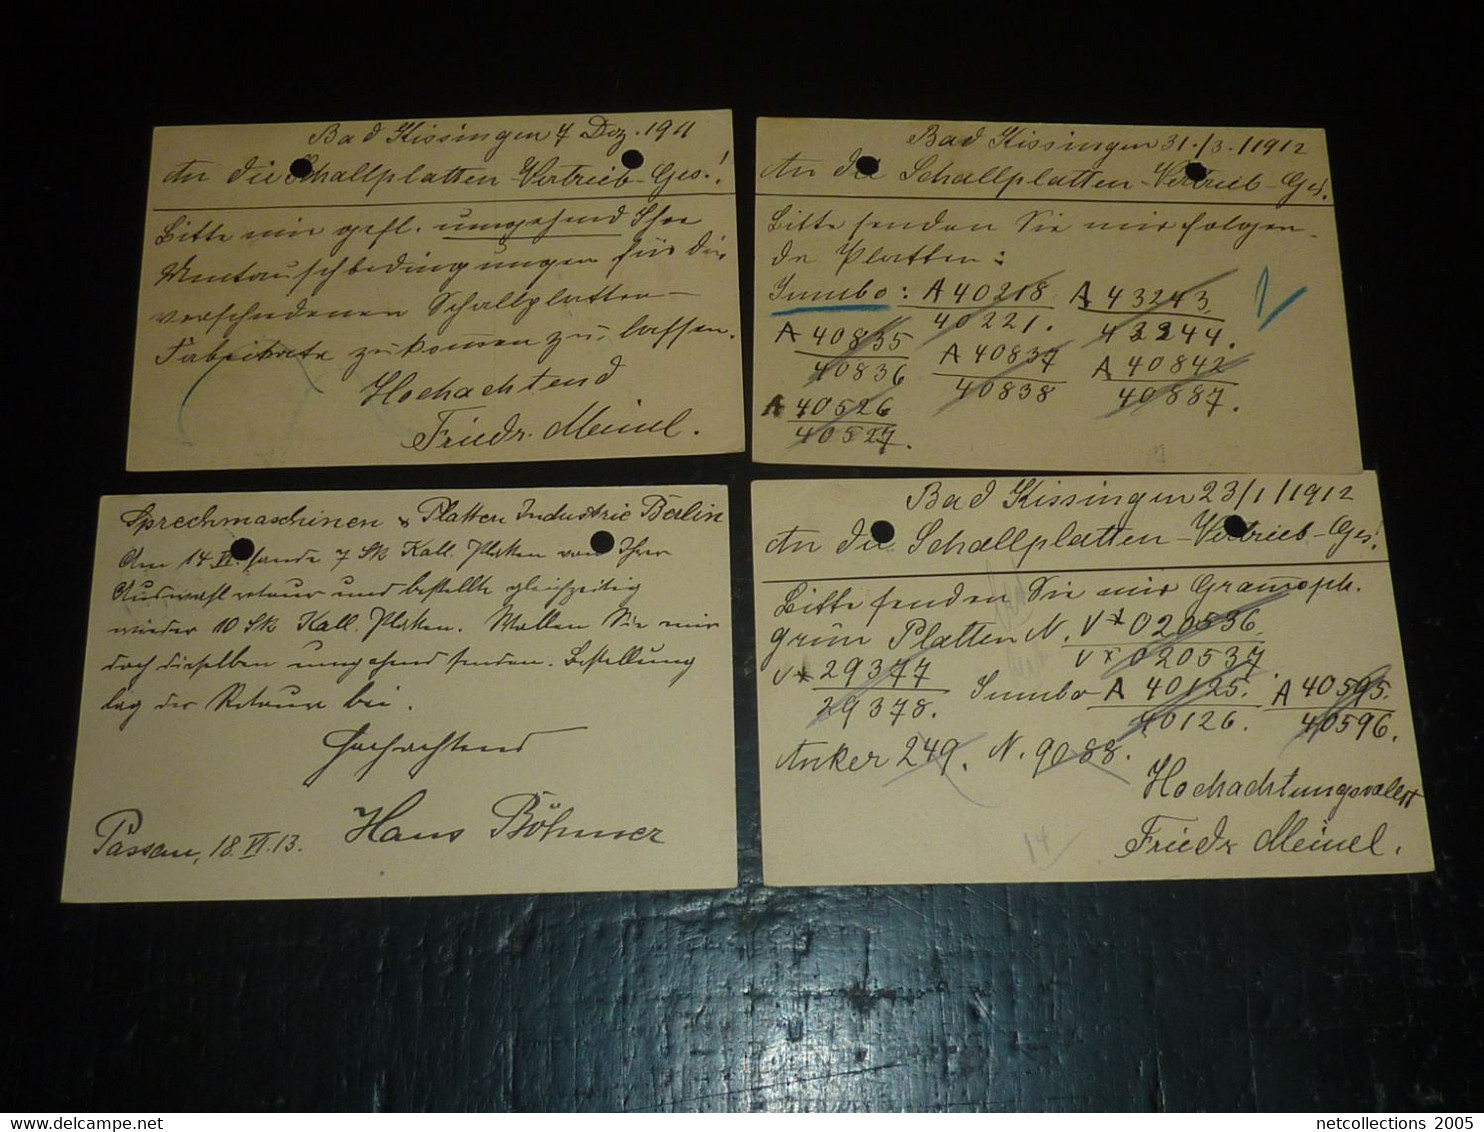 Bad Kissingen 7 Dez. 1911
An die Schallplatten-Vertrieb-Ges.!
Bitte mir gefl. umgehend Ihre
Umtauschbedingungen für die
verschiedenen Schallplatten-
Fabrikate zukommen zu lassen.
Hochachtend
Friedr. Meinel.
Bad Kissingen 31./3./1912
An die Schallplatten-Vertrieb-Ges.
Bitte senden Sie mir folgen-
de Platten:
Jumbo: A 40218 A 43243
40221. 43244.
A 40835 A 40837 A 40842
40836 40838 40887.
A 40526
40527.
Sprechmaschinen & Platten Industrie Berlin
Am 14. VI. sande 7 Stk Kall. Platten von Ihrer
Auswahl retour und bestellte gleichzeitig
wieder 10 Stk Kall. Platten. Wollen Sie mir
doch dieselben umgehend senden. Bestellung
lag der Retour bei.
Hochachtend
Passau, 18. VI. 13. Hans Böhmer
Bad Kissingen 23/1/1912
An die Schallplatten-Vertrieb-Ges.
Bitte senden Sie mir Gramoph.
grün Platten N. V* 020536
V* 020537.
V* 29377 Jumbo A 40125. A 40595.
29378. 40126. 40596.
Anker 249. N. 9088.
Hochachtungsvollst
Friedr Meinel.
14
netcollections 2005